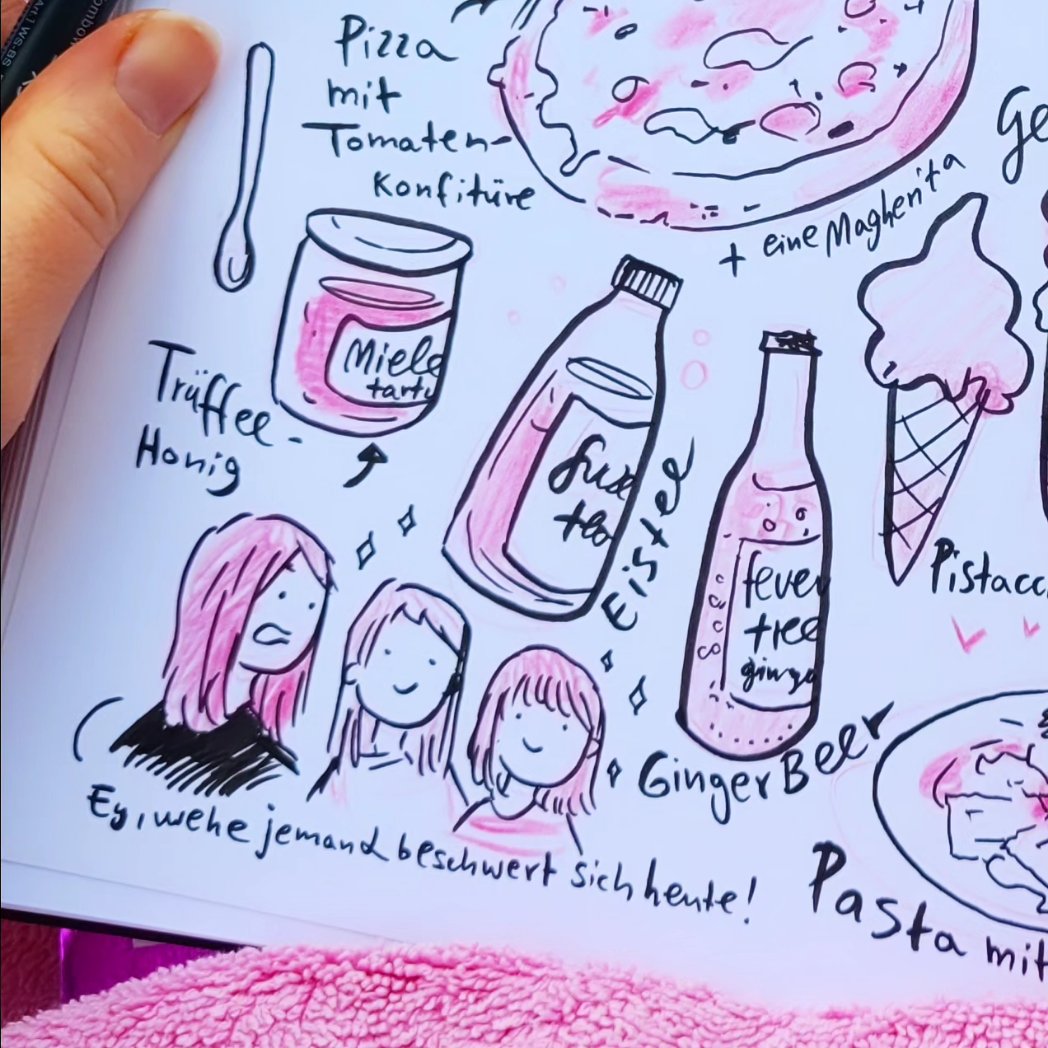 Pizza
mit
Tomaten-
Konfitüre
+ eine Magherita
Ge
Miele
tartu
Trüffel-
Honig
fuze
tea
Eistee
fever
tree
ginge
Pistacc
Ginger Beer
Ey, wehe jemand beschwert sich heute!
Pasta mit